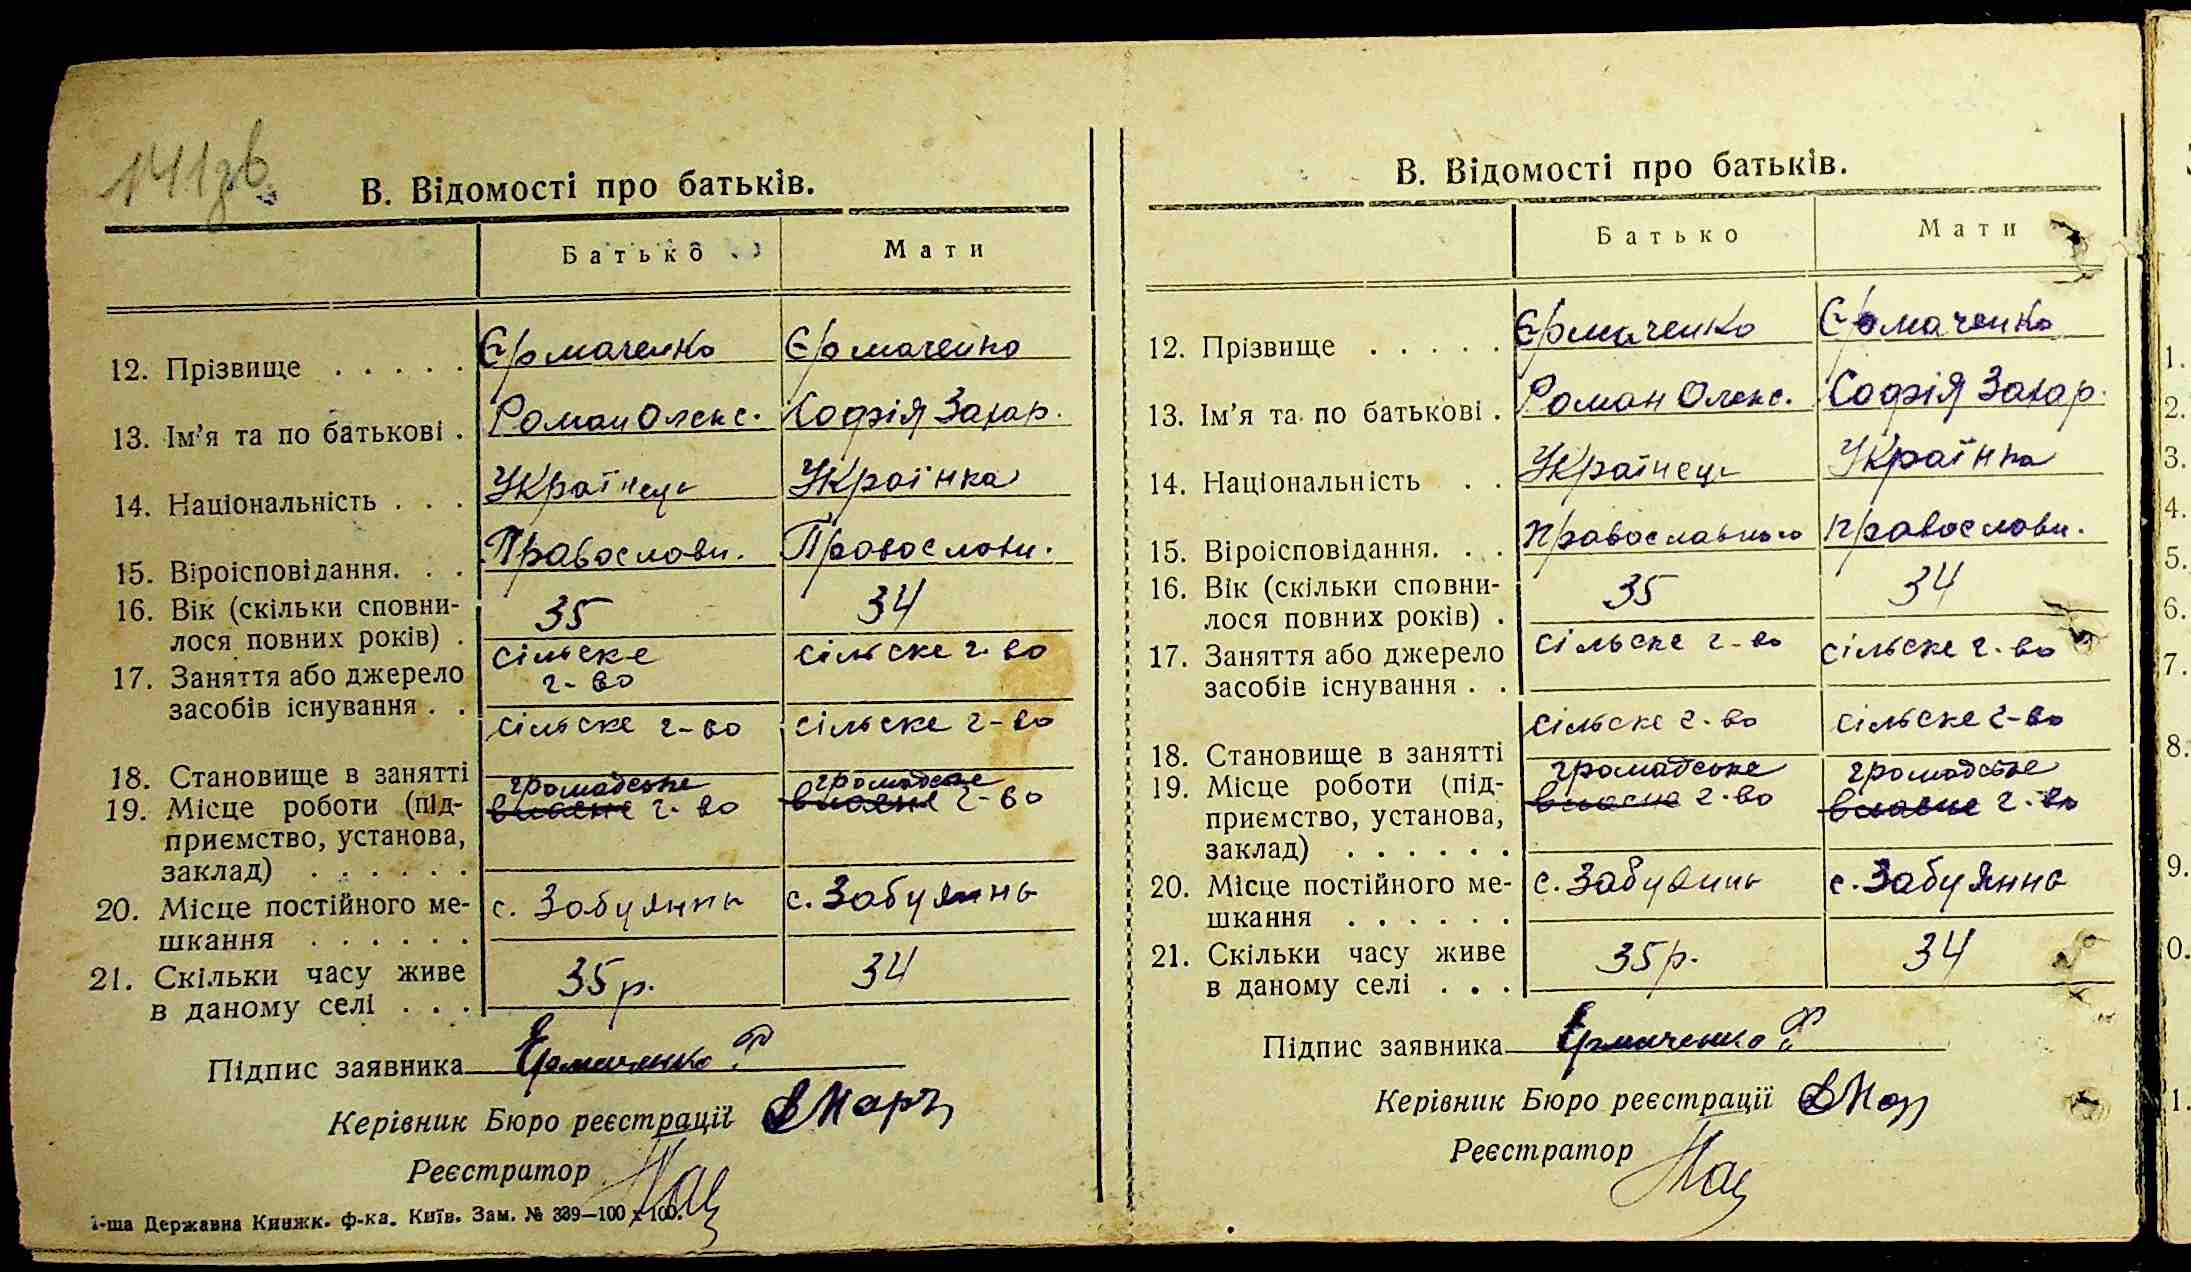 141зв.
В. Відомості про батьків.
Батько Мати
12. Прізвище . . . . . Єрмаченко Єрмаченко
13. Ім'я та по батькові . Роман Олекс. Софія Захар.
14. Національність . . . Українець Українка
15. Віроісповідання. . . Православн. Православн.
16. Вік (скільки сповни-
лося повних років) . 35 34
17. Заняття або джерело сільске сільске г-во
засобів існування . . г-во
18. Становище в занятті сільске г-во сільске г-во
громадське громадське
19. Місце роботи (під- власне г-во власне г-во
приємство, установа,
заклад) . . . . . .
20. Місце постійного ме- с. Забуяннь с. Забуяннь
шкання . . . . . .
21. Скільки часу живе 35 р. 34
в даному селі . . .
Підпис заявника Єрмаченко Р
Керівник Бюро реєстрації
Реєстратор
1-ша Державна Книжк. ф-ка. Київ. Зам. № 339—100 x 100.
В. Відомості про батьків.
Батько Мати
12. Прізвище . . . . . Єрмаченко Єрмаченко
13. Ім'я та по батькові . Роман Олекс. Софія Захар.
14. Національність . . Українець Українка
15. Віроісповідання. . . Православного Православн.
16. Вік (скільки сповни-
лося повних років) . 35 34
17. Заняття або джерело сільске г-во сільске г-во
засобів існування . .
18. Становище в занятті сільске г-во сільске г-во
громадське громадське
19. Місце роботи (під- власне г-во власне г-во
приємство, установа,
заклад) . . . . . .
20. Місце постійного ме- с. Забуяннь с. Забуяннь
шкання . . . . . .
21. Скільки часу живе 35 р. 34
в даному селі . . .
Підпис заявника Єрмаченко Р
Керівник Бюро реєстрації
Реєстратор